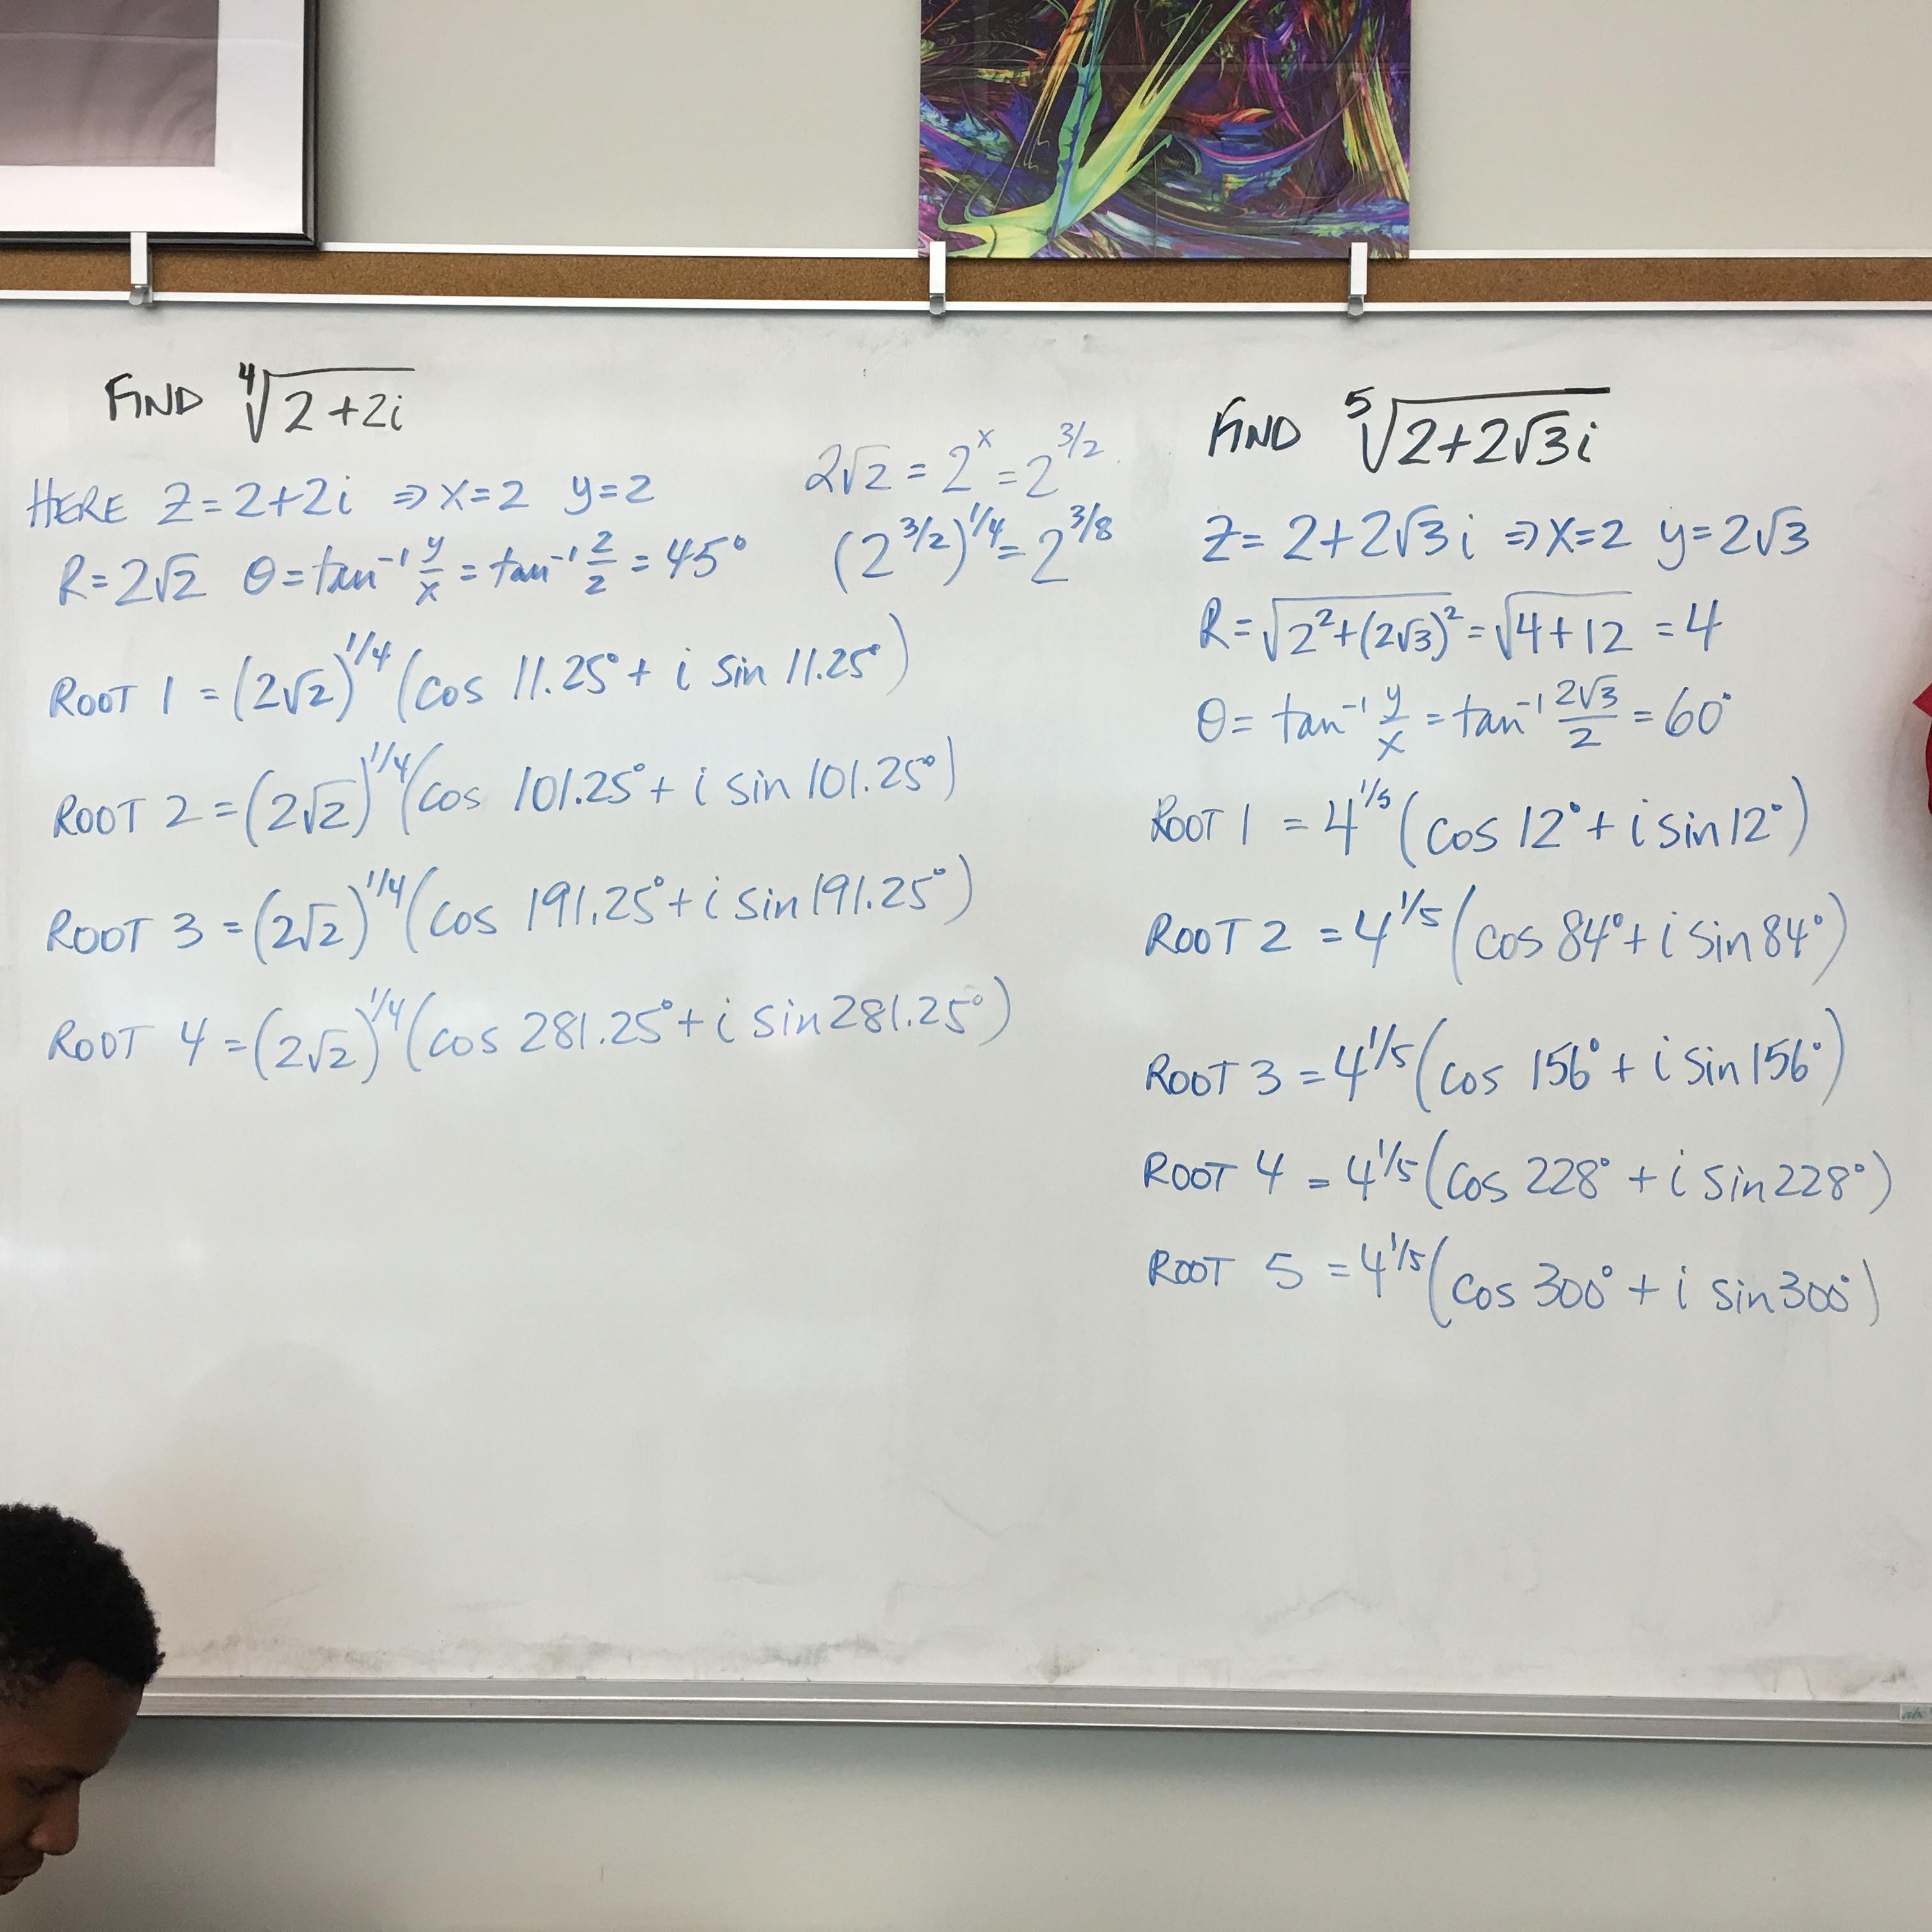 FIND ⁴√(2+2i)
HERE Z=2+2i ⇒ X=2 y=2
R=2√2 θ=tan⁻¹ y/x = tan⁻¹ 2/2 = 45°
ROOT 1 = (2√2)^1/4 (cos 11.25° + i sin 11.25°)
ROOT 2 = (2√2)^1/4 (cos 101.25° + i sin 101.25°)
ROOT 3 = (2√2)^1/4 (cos 191.25° + i sin 191.25°)
ROOT 4 = (2√2)^1/4 (cos 281.25° + i sin 281.25°)
2√2 = 2^x = 2^3/2
(2^3/2)^1/4 = 2^3/8
FIND ⁵√(2+2√3i)
Z= 2+2√3 i ⇒ X=2 y=2√3
R=√(2²+(2√3)²) = √(4+12) = 4
θ= tan⁻¹ y/x = tan⁻¹ 2√3/2 = 60°
ROOT 1 = 4^1/5 (cos 12° + i sin 12°)
ROOT 2 = 4^1/5 (cos 84° + i sin 84°)
ROOT 3 = 4^1/5 (cos 156° + i sin 156°)
ROOT 4 = 4^1/5 (cos 228° + i sin 228°)
ROOT 5 = 4^1/5 (cos 300° + i sin 300°)
abc